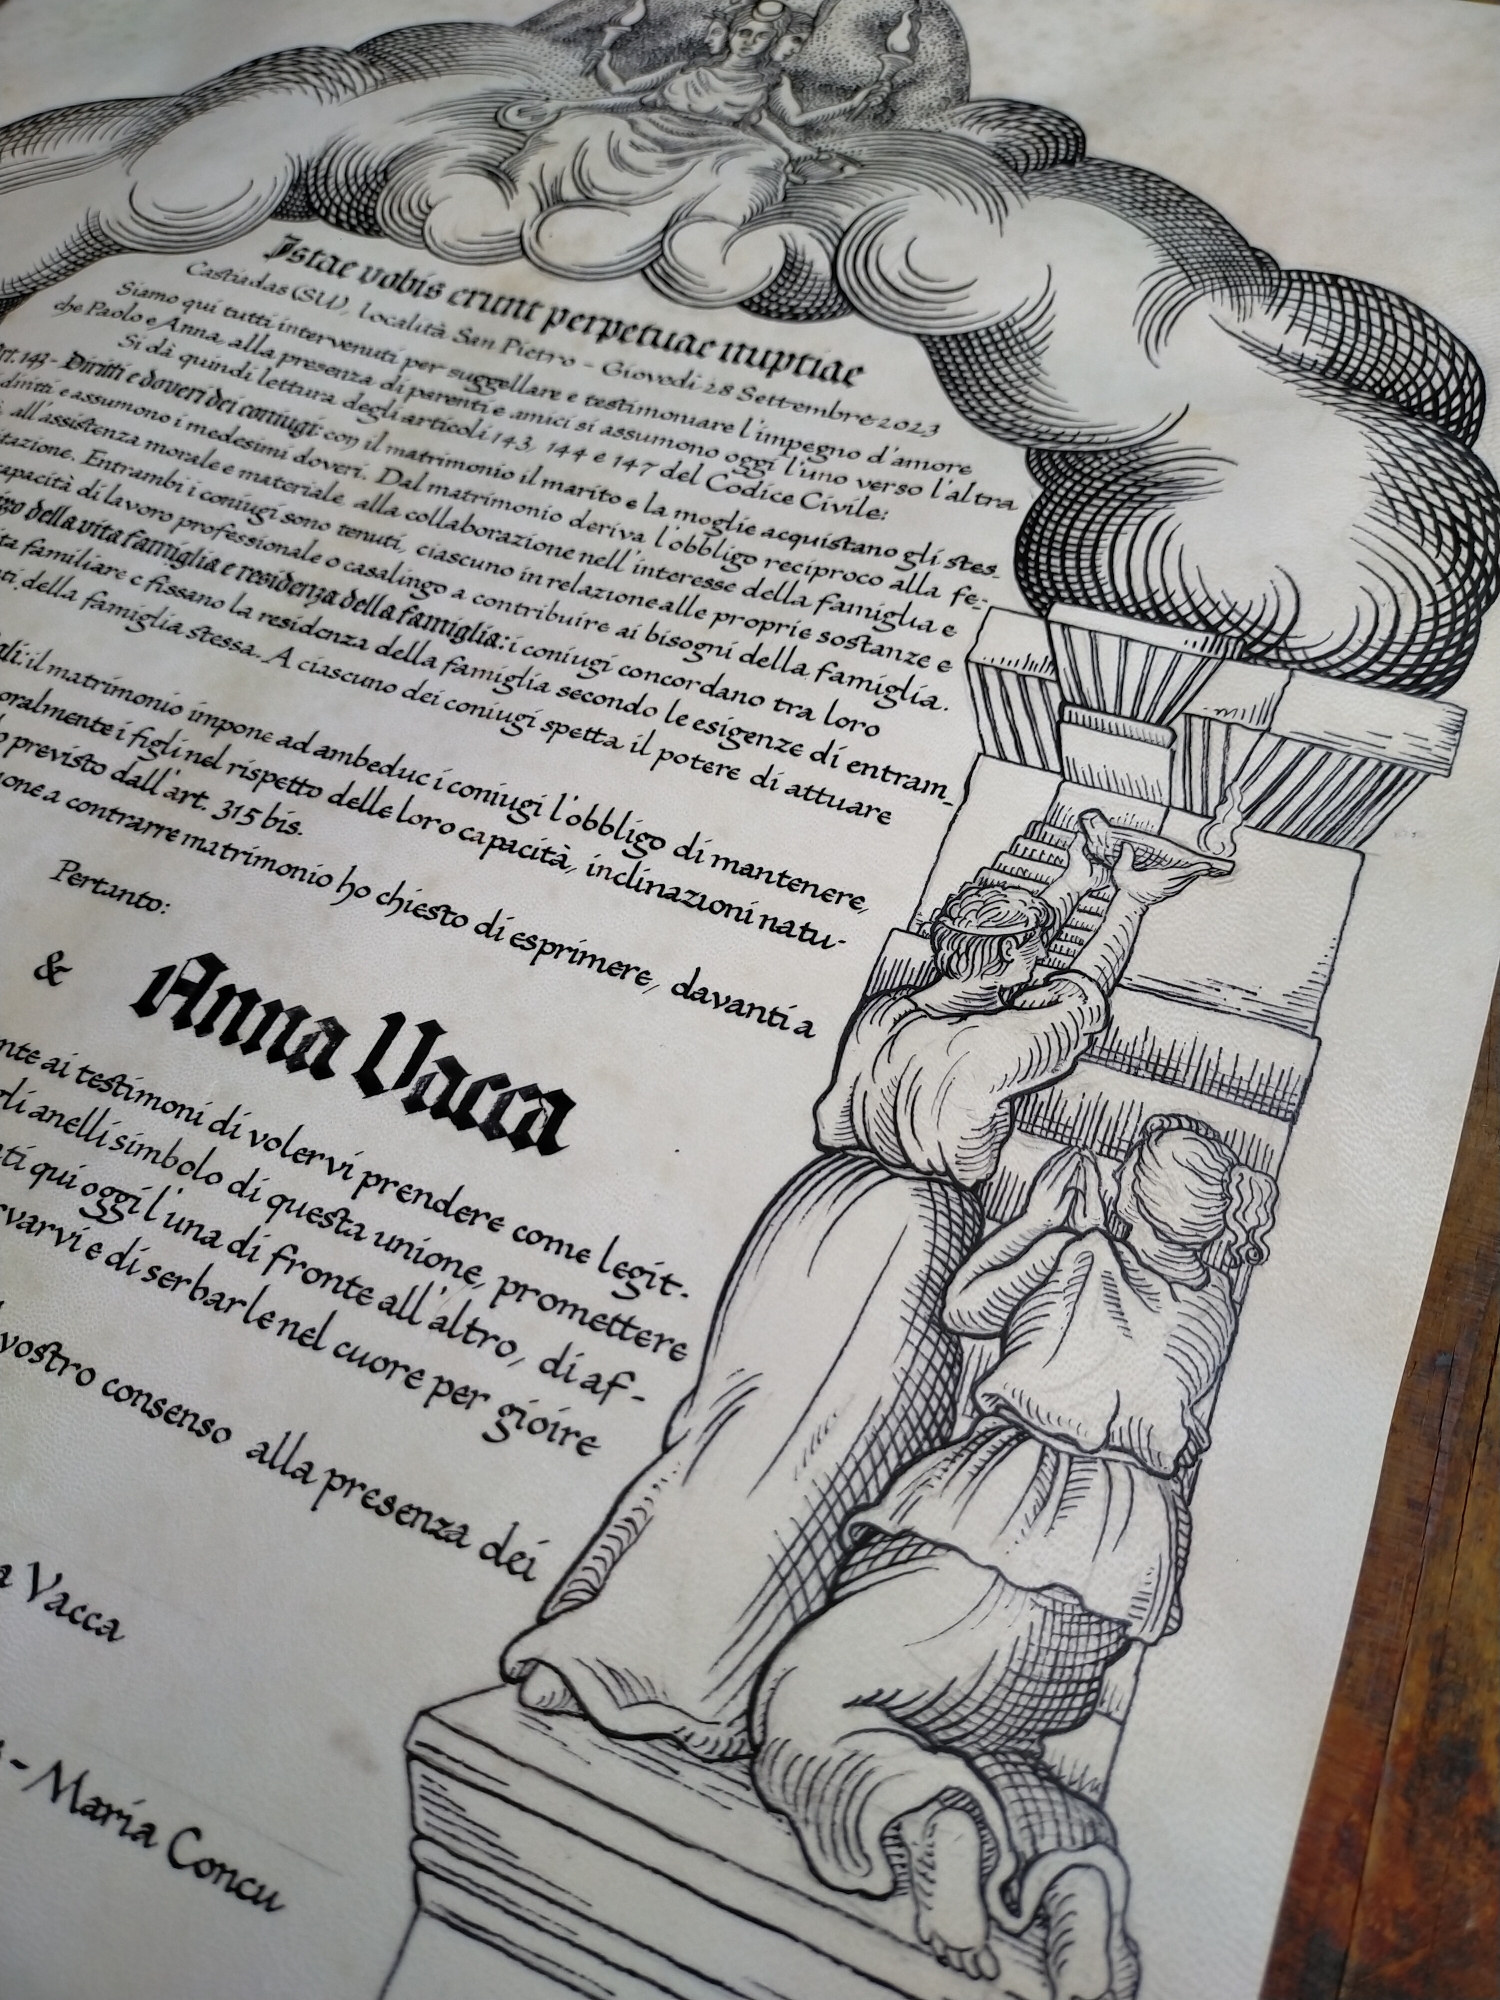 Istae vobis erunt perpetuae nuptiae
Castiadas (SU), località San Pietro - Giovedì 28 Settembre 2023
Siamo qui tutti intervenuti per suggellare e testimoniare l'impegno d'amore
che Paolo e Anna, alla presenza di parenti e amici si assumono oggi l'uno verso l'altra
Si dà quindi lettura degli articoli 143, 144 e 147 del Codice Civile:
Art. 143 - Diritti e doveri dei coniugi: con il matrimonio il marito e la moglie acquistano gli stes-
diritti e assumono i medesimi doveri. Dal matrimonio deriva l'obbligo reciproco alla fe-
all'assistenza morale e materiale, alla collaborazione nell'interesse della famiglia e
tazione. Entrambi i coniugi sono tenuti, ciascuno in relazione alle proprie sostanze e
capacità di lavoro professionale o casalingo a contribuire ai bisogni della famiglia.
della vita famiglia e residenza della famiglia: i coniugi concordano tra loro
ta familiare e fissano la residenza della famiglia secondo le esigenze di entram-
ti della famiglia stessa. A ciascuno dei coniugi spetta il potere di attuare
gli: il matrimonio impone ad ambeduc i coniugi l'obbligo di mantenere,
oralmente i figli nel rispetto delle loro capacità, inclinazioni natu-
o previsto dall'art. 315 bis.
one a contrarre matrimonio ho chiesto di esprimere, davanti a
Pertanto:
& Anna Vacca
nte ai testimoni di volervi prendere come legit-
gli anelli simbolo di questa unione, promettere
ti qui oggi l'una di fronte all'altro, di af-
rvarvi e di serbarle nel cuore per gioire
vostro consenso alla presenza dei
a Vacca
- Maria Concu